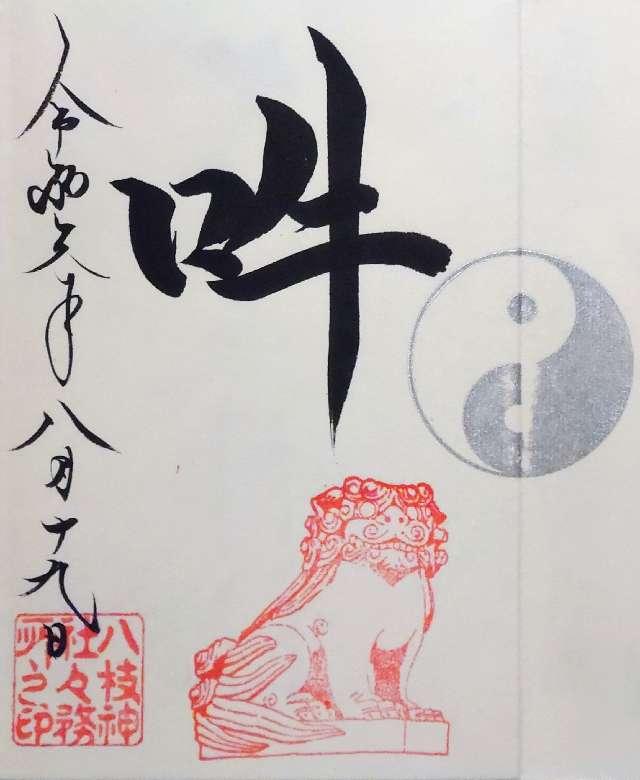 吽
令和六年八月十九日
八枝神
社々務
所之印